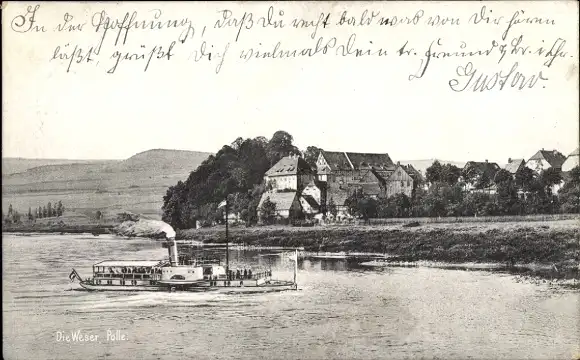 In der Hoffnung, daß Du recht bald was von Dir hören
läßt, grüßt Dich vielmals Dein tr. Freund & Br. i. Chr.
Gustav.
Die Weser Polle.